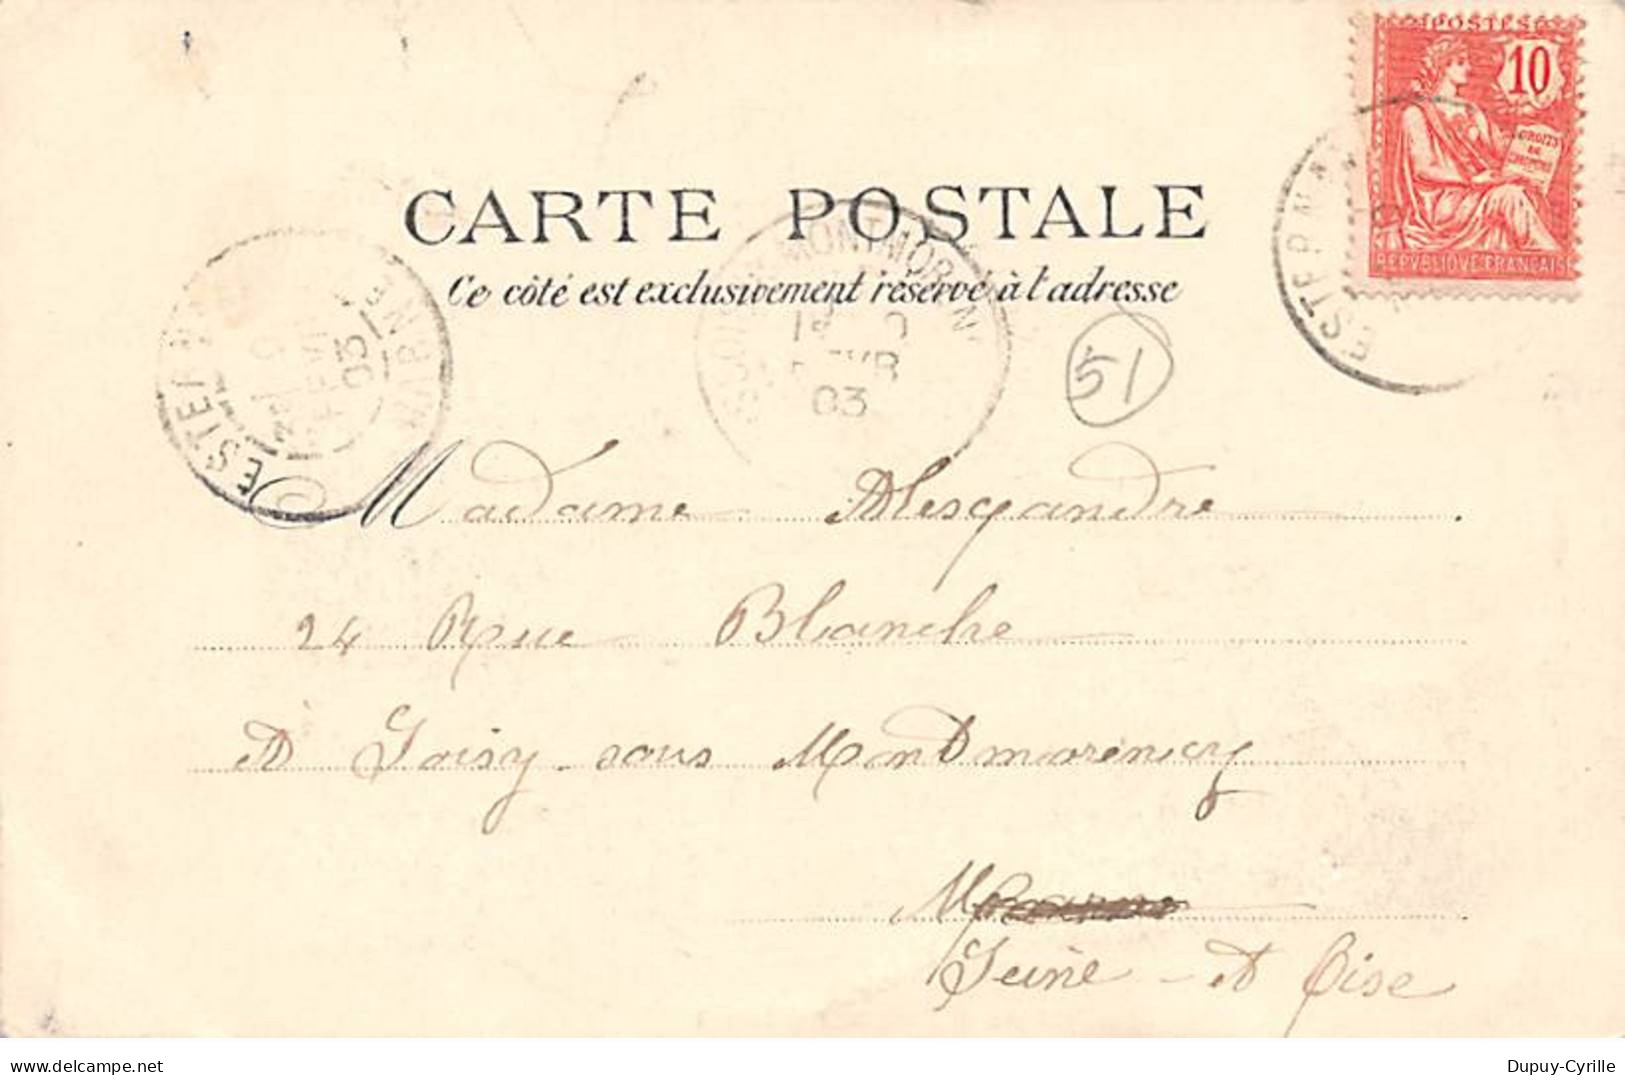 POSTES
10
DROITS
DE
L'HOMME
REPVBLIQVE FRANÇAISE
CARTE POSTALE
Ce côté est exclusivement réservé à l'adresse
ESTERNAY MARNE
FEVR
03
MONTMORENCY
FEVR
03
ESTERNAY
51
Madame Alexandre
24 Rue Blanche
à Soisy sous Montmorency
Seine-et Oise
delcampe.net
Dupuy-Cyrille